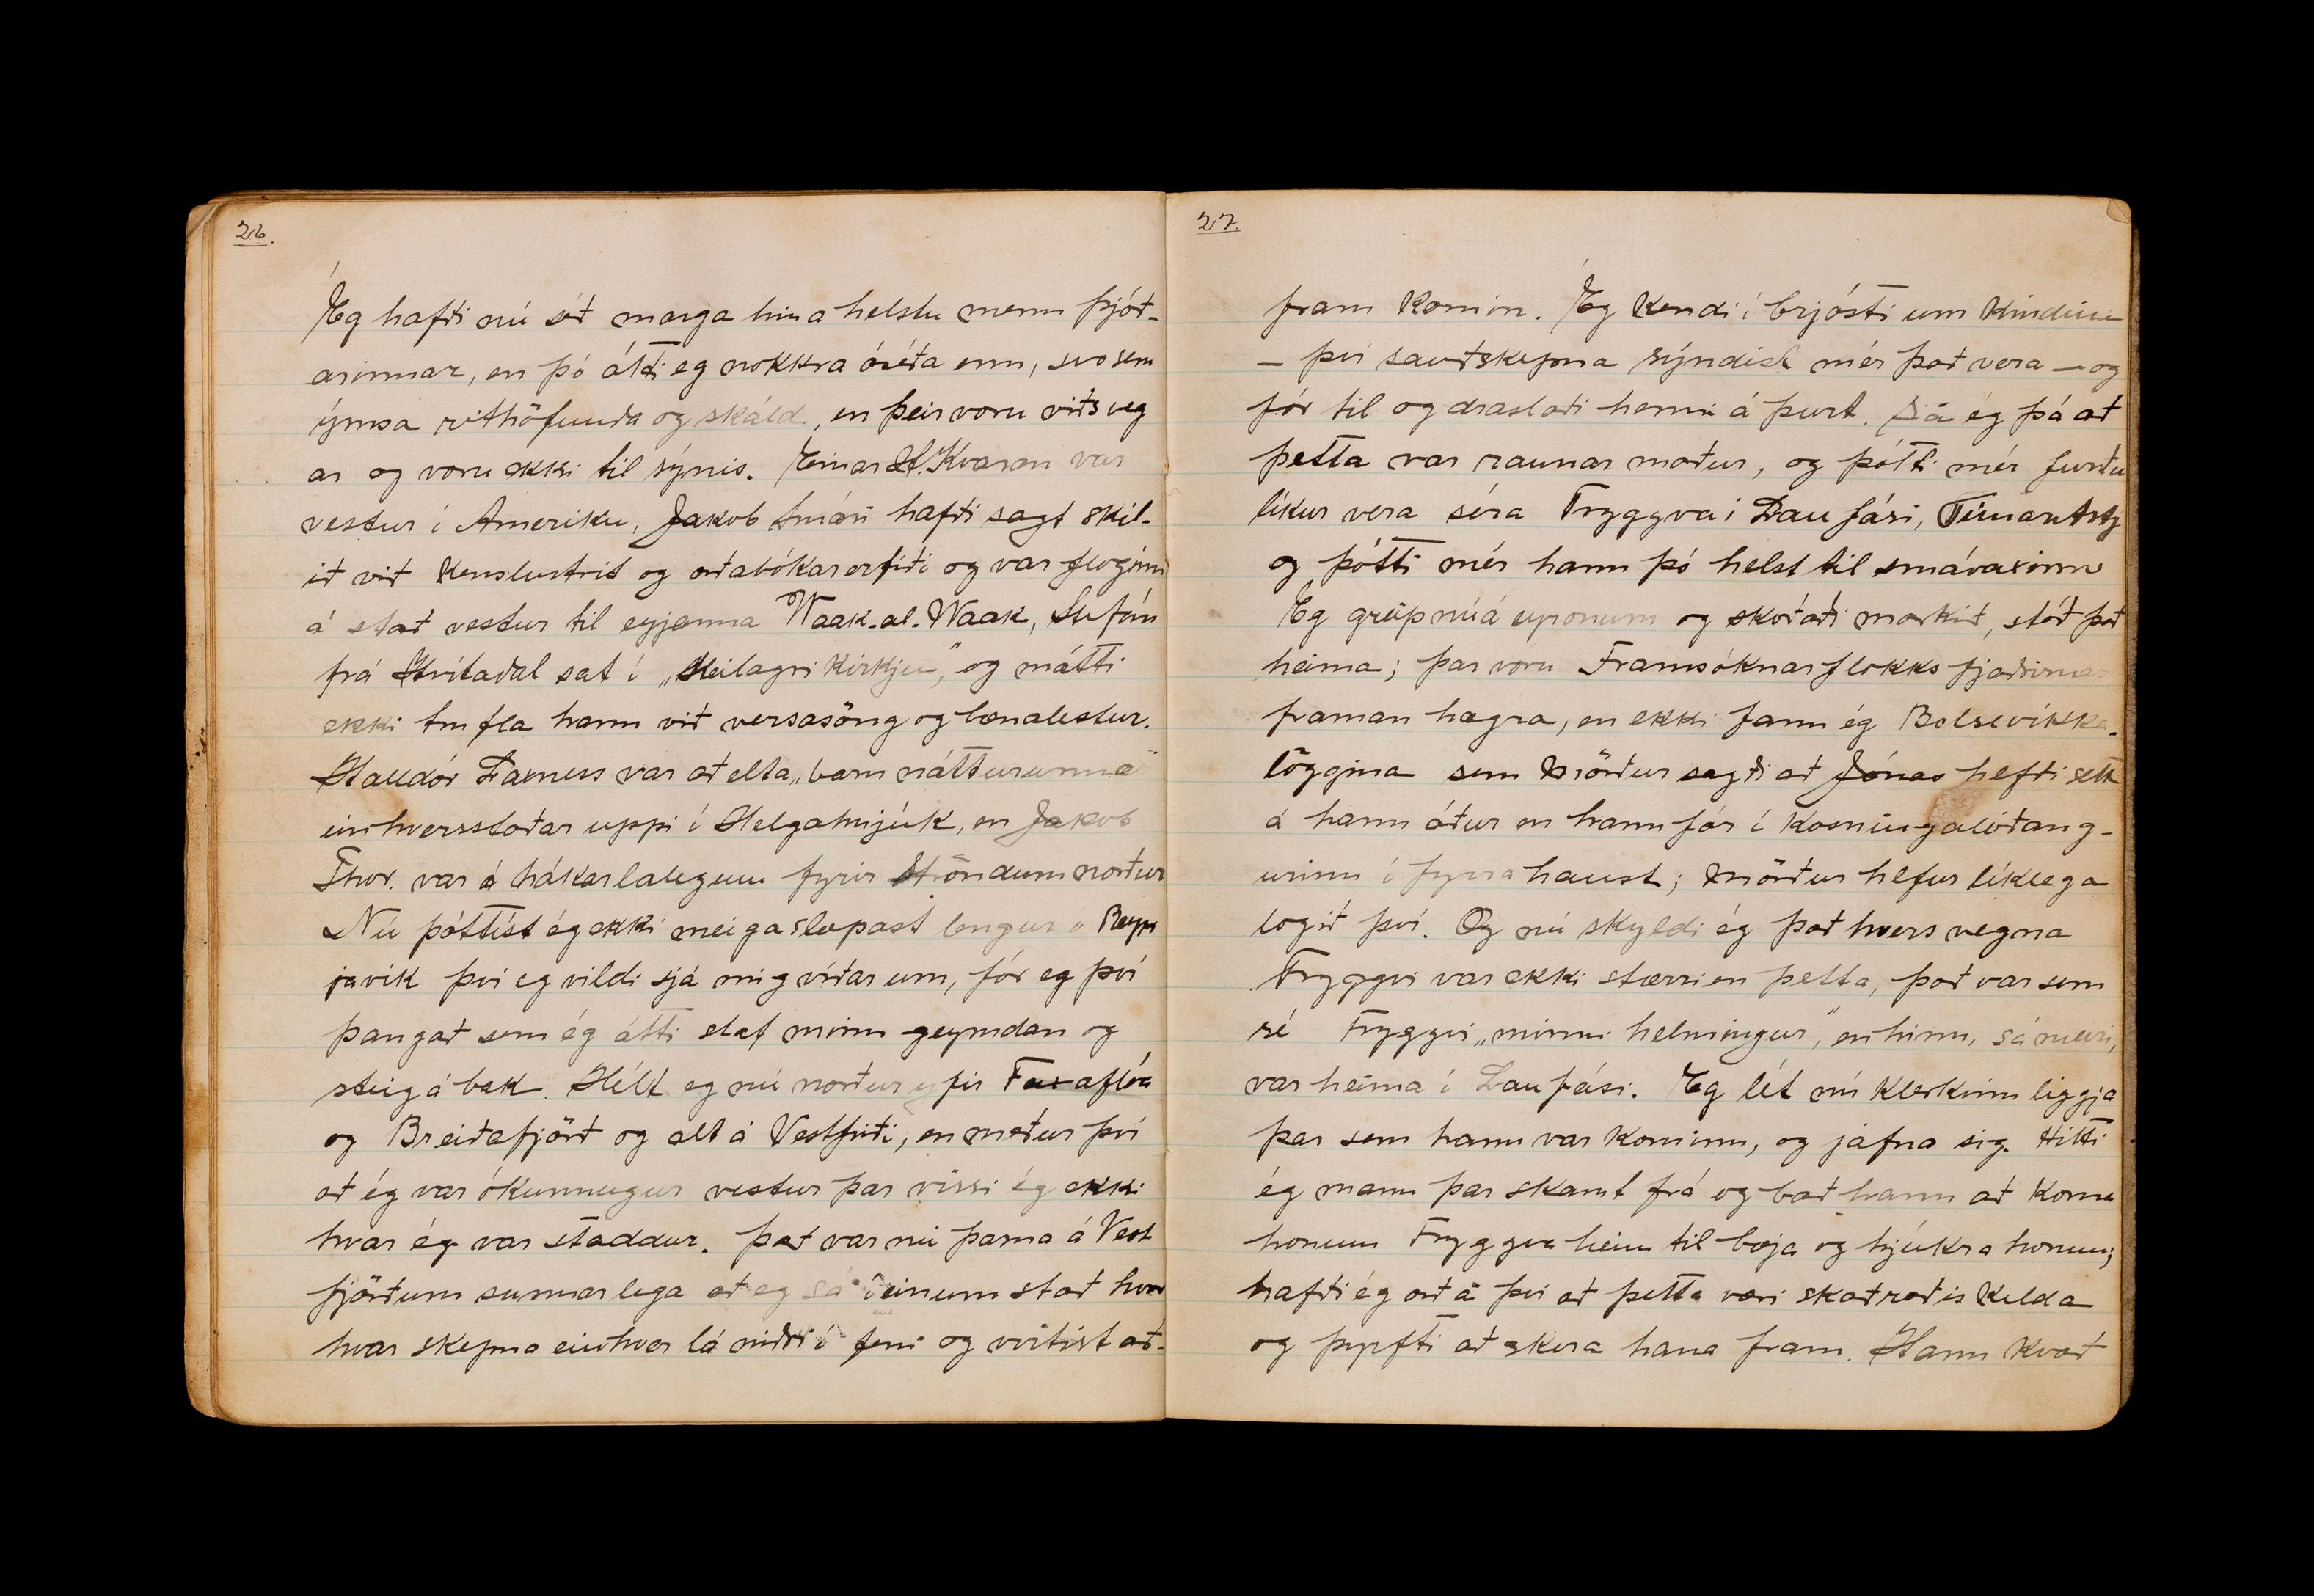 26.
Ég hafði nú séð marga hina helstu menn þjóð-
arinnar, en þó átti eg nokkra óséða enn, svo sem
ýmsa rithöfunda og skáld, en þeir voru viðsveg
ar og voru ekki til sýnis. Einar H. Kvaran var
vestur í Ameríku, Jakob Smári hafði sagt skil-
ið við kenslustrit og orðabókarerfiði og var floginn
á stað vestur til eyjanna Waak-al-Waak, Stefán
frá Hvítadal sat í „Heilagri kirkju“, og mátti
ekki trufla hann við versasöng og bænalestur.
Halldór Laxness var að elta „barn náttúrunnar“
einhversstaðar uppi í Helgahnjúk, en Jakob
Thor. var á hákarlalegum fyrir Ströndum norður
Nú þóttist ég ekki meiga slæpast lengur í Reykja
javík því eg vildi sjá mig víðar um, fór eg því
þangað sem ég átti staf minn geymdan og
steig á bak. Hélt eg nú norður yfir Faxaflóa
og Breiðafjörð og alt á Vestfirði, en með því
að ég var ókunnugur vestur þar vissi ég ekki
hvar ég var staddur. Það var nú þarna á Vest
fjörðum sunnarlega að eg sá í einum stað hvar
hvar skepna einhver lá niðri í feni og virtist að-
27.
fram komin. Ég kendi í brjósti um kindina
– því sauðskepna sýndist mér það vera – og
fór til og draslaði henni á þurt. Sá ég þá að
þetta var raunar maður, og þótti mér furðu
líkur vera séra Tryggva í Laufási,
og þótti mér hann þó helst til smávaxinn
Eg greip nú á eyronum og skoðaði markið, stóð það
heima; þar voru Framsóknarflokks fjaðrirnar
framan hægra, en ekki fann ég Bolsevikka-
löggina sem Mörður sagði að Jónas hefði sett
á hann áður en hann fór í kosningaleiðang-
urinn í fyrra haust; Mörður hefur líklega
logið því. Og nú skyldi ég það hvers vegna
Tryggvi var ekki stærri en þetta, það var sem
sé Tryggvi „minni helmingur“, en hinn, sá meiri,
var heima í Laufási. Eg lét nú klerkinn liggja
þar sem hann var kominn, og jafna sig. Hitti
ég mann þar skamt frá og bað hann að koma
honum Tryggva heim til bæja og hjúkra honum;
hafði ég orð á því að þetta væri skaðræðis kelda
og þyrfti að skera hana fram. Hann kvað